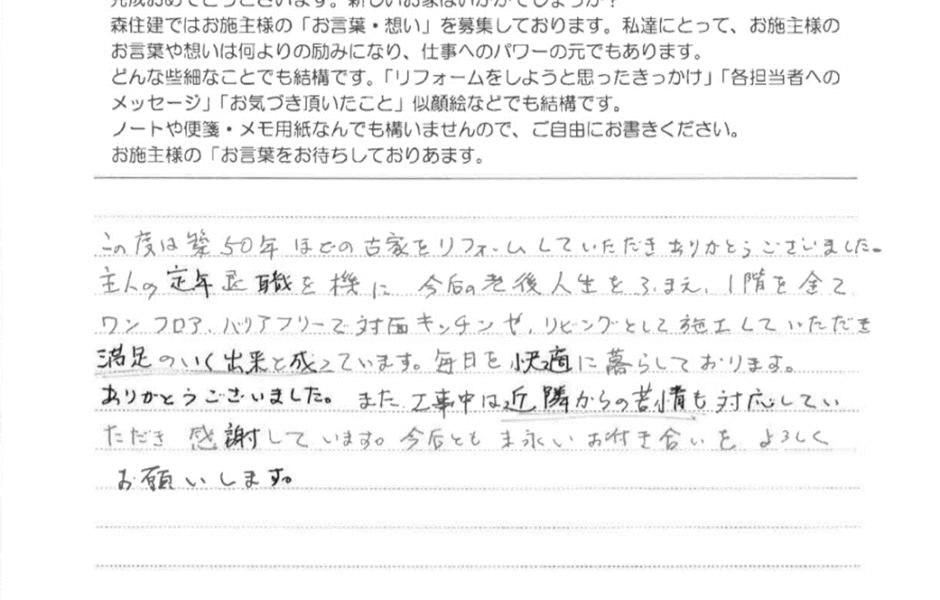 完成おめでとうございます。新しいお家はいかがでしょうか？
森住建ではお施主様の「お言葉・想い」を募集しております。私達にとって、お施主様の
お言葉や想いは何よりの励みになり、仕事へのパワーの元でもあります。
どんな些細なことでも結構です。「リフォームをしようと思ったきっかけ」「各担当者への
メッセージ」「お気づき頂いたこと」似顔絵などでも結構です。
ノートや便箋・メモ用紙なんでも構いませんので、ご自由にお書きください。
お施主様の「お言葉をお待ちしておりあます。
この度は築50年ほどの古家をリフォームしていただきありがとうございました。
主人の定年退職を機に 今后の老後人生をふまえ、1階を全て
ワンフロア、バリアフリーで対面キッチンや、リビングとして施工していただき
満足のいく出来と成っています。毎日を快適に暮らしております。
ありがとうございました。また工事中は近隣からの苦情も対応してい
ただき 感謝しています。今后とも 末永いお付き合いを よろしく
お願いします。